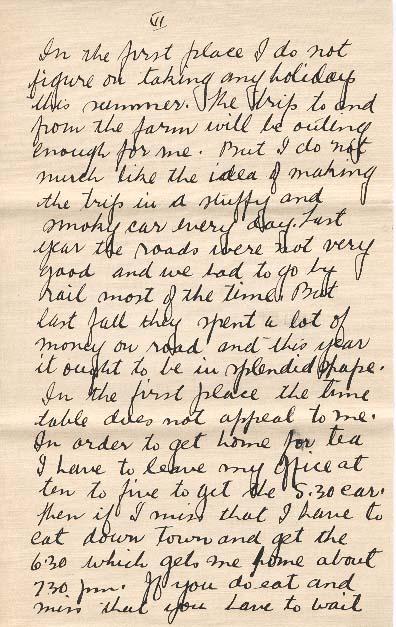 VII
In the first place I do not
figure on taking any holidays
this summer. The trip to and
from the farm will be outing
enough for me. But I do not
much like the idea of making
the trip in a stuffy and
smoky car every day. Last
year the roads were not very
good and we had to go by
rail most of the time. But
last fall they spent a lot of
money on road and this year
it ought to be in splendid shape.
In the first place the time
table does not appeal to me.
In order to get home for tea
I have to leave my office at
ten to five to get the 5.30 car.
Then if I miss that I have to
eat down town and get the
6.30 which gets me home about
7.30 pm. If you do eat and
miss that you have to wait